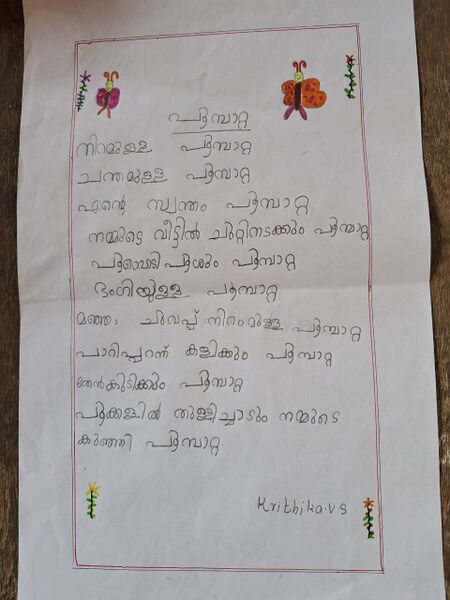 പൂമ്പാറ്റ
നിറമുള്ള പൂമ്പാറ്റ
ചന്തമുള്ള പൂമ്പാറ്റ
എന്റെ സ്വന്തം പൂമ്പാറ്റ
നമ്മുടെ വീട്ടിൽ ചുറ്റിനടക്കും പൂമ്പാറ്റ
പൂമ്പൊടിപൂശും പൂമ്പാറ്റ
ഭംഗിയുള്ള പൂമ്പാറ്റ
മഞ്ഞ ചുവപ്പ് നിറംമുള്ള പൂമ്പാറ്റ
പാറിപ്പറന്ന് കളിക്കും പൂമ്പാറ്റ
തേൻകുടിക്കും പൂമ്പാറ്റ
പൂക്കളിൽ തുള്ളിച്ചാടും നമ്മുടെ
കുഞ്ഞി പൂമ്പാറ്റ.
Krithika.v.s